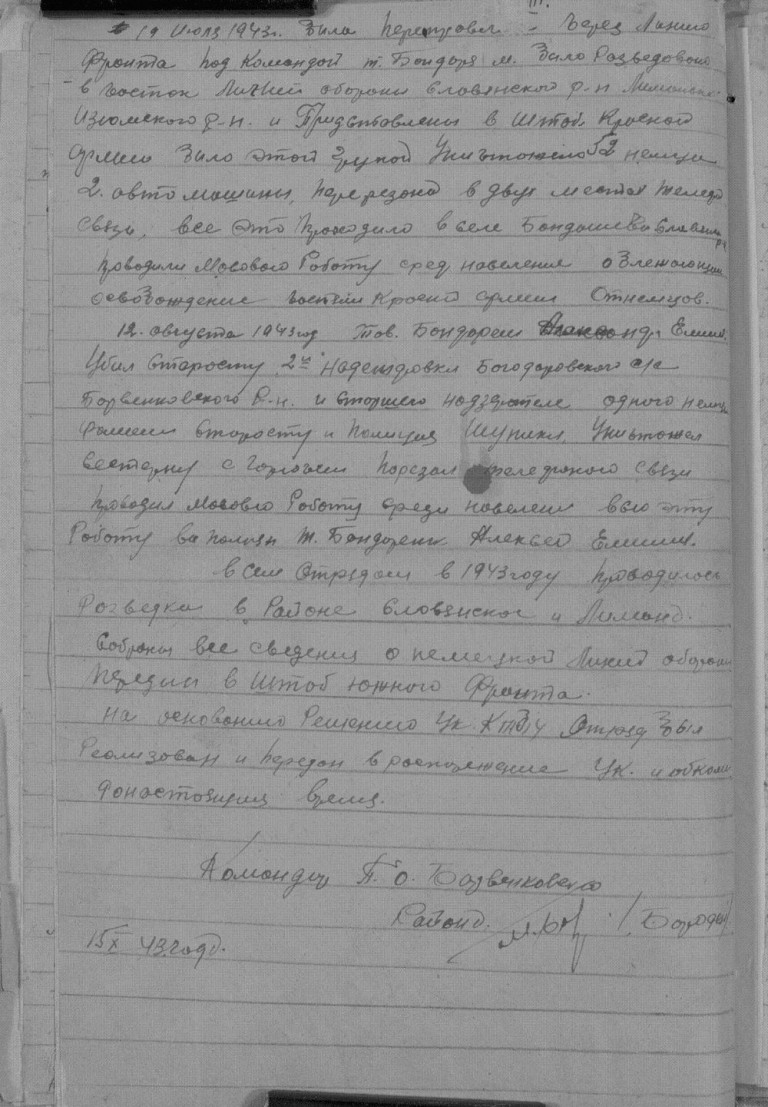 III.
19 Июля 1943г. Била перетравл - Через Линию
Фронта под Командой т. Бондаря м. Било Разведовоно
в часток Линий обороны Словянского р-н Лиманско
Изюмского р-н. и Придставлены в Штоб. Красной
Армии Било этой групой Уништожено 52 немци
2. автомошины, перерезоно в двух местах телефо
Связи, все это проходило в селе Бондашево Словян
Проводили Мосового Роботу сред населения о
освобождение частям Красной армии Отнемцов.
12. августа 1943год тов. Бондорем Емил.
Убил Старосту 2й Надеждовки Богодаровского с/с
Борвенковского Р-н. и сторшего надзретеле одного немц
фомили Старосту и полицая Шупики, Уништожил
вестерну с Горючем порезал телефоного связи
проводил Мосовою Роботу среди новелени всю эту
Роботу ва полнен т. Бондоренк Алексей Емилич.
всем Отредом в 1943году проводилось
Розведки в Районе Словянског и Лимонд.
Собраны все сведения о немецкой Линий оборони
передни в Штоб южного Фронта.
На основонию Решению Цк. КП/б/У Отряд был
Реализован и передон в роспорежение Цк. и обком
донастоящия время.
Комондир П.О. Борвенковского
Района.
15 X 43года.